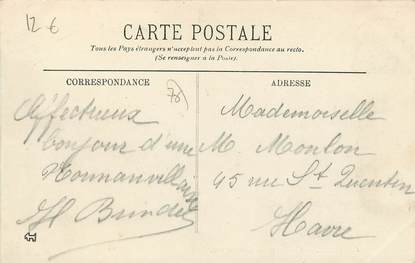 12 €
CARTE POSTALE
Tous les Pays étrangers n'acceptent pas la Correspondance au recto.
(Se renseigner à la Poste).
CORRESPONDANCE
76
Affectueux
bonjour d'une
ADRESSE
Mademoiselle
M. Moulon
45 rue St Quentin
Havre